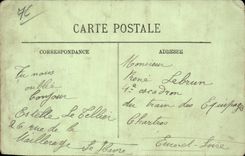 7€
CARTE POSTALE
CORRESPONDANCE
ADRESSE
Tu nous
oublie
Bonjour
Estelle Le Tellier
26 rue de la
Mailleraye Le Havre
Monsieur
René Lebrun
4e escadron
du train des Equipages
Chartres
Eure-et-Loire